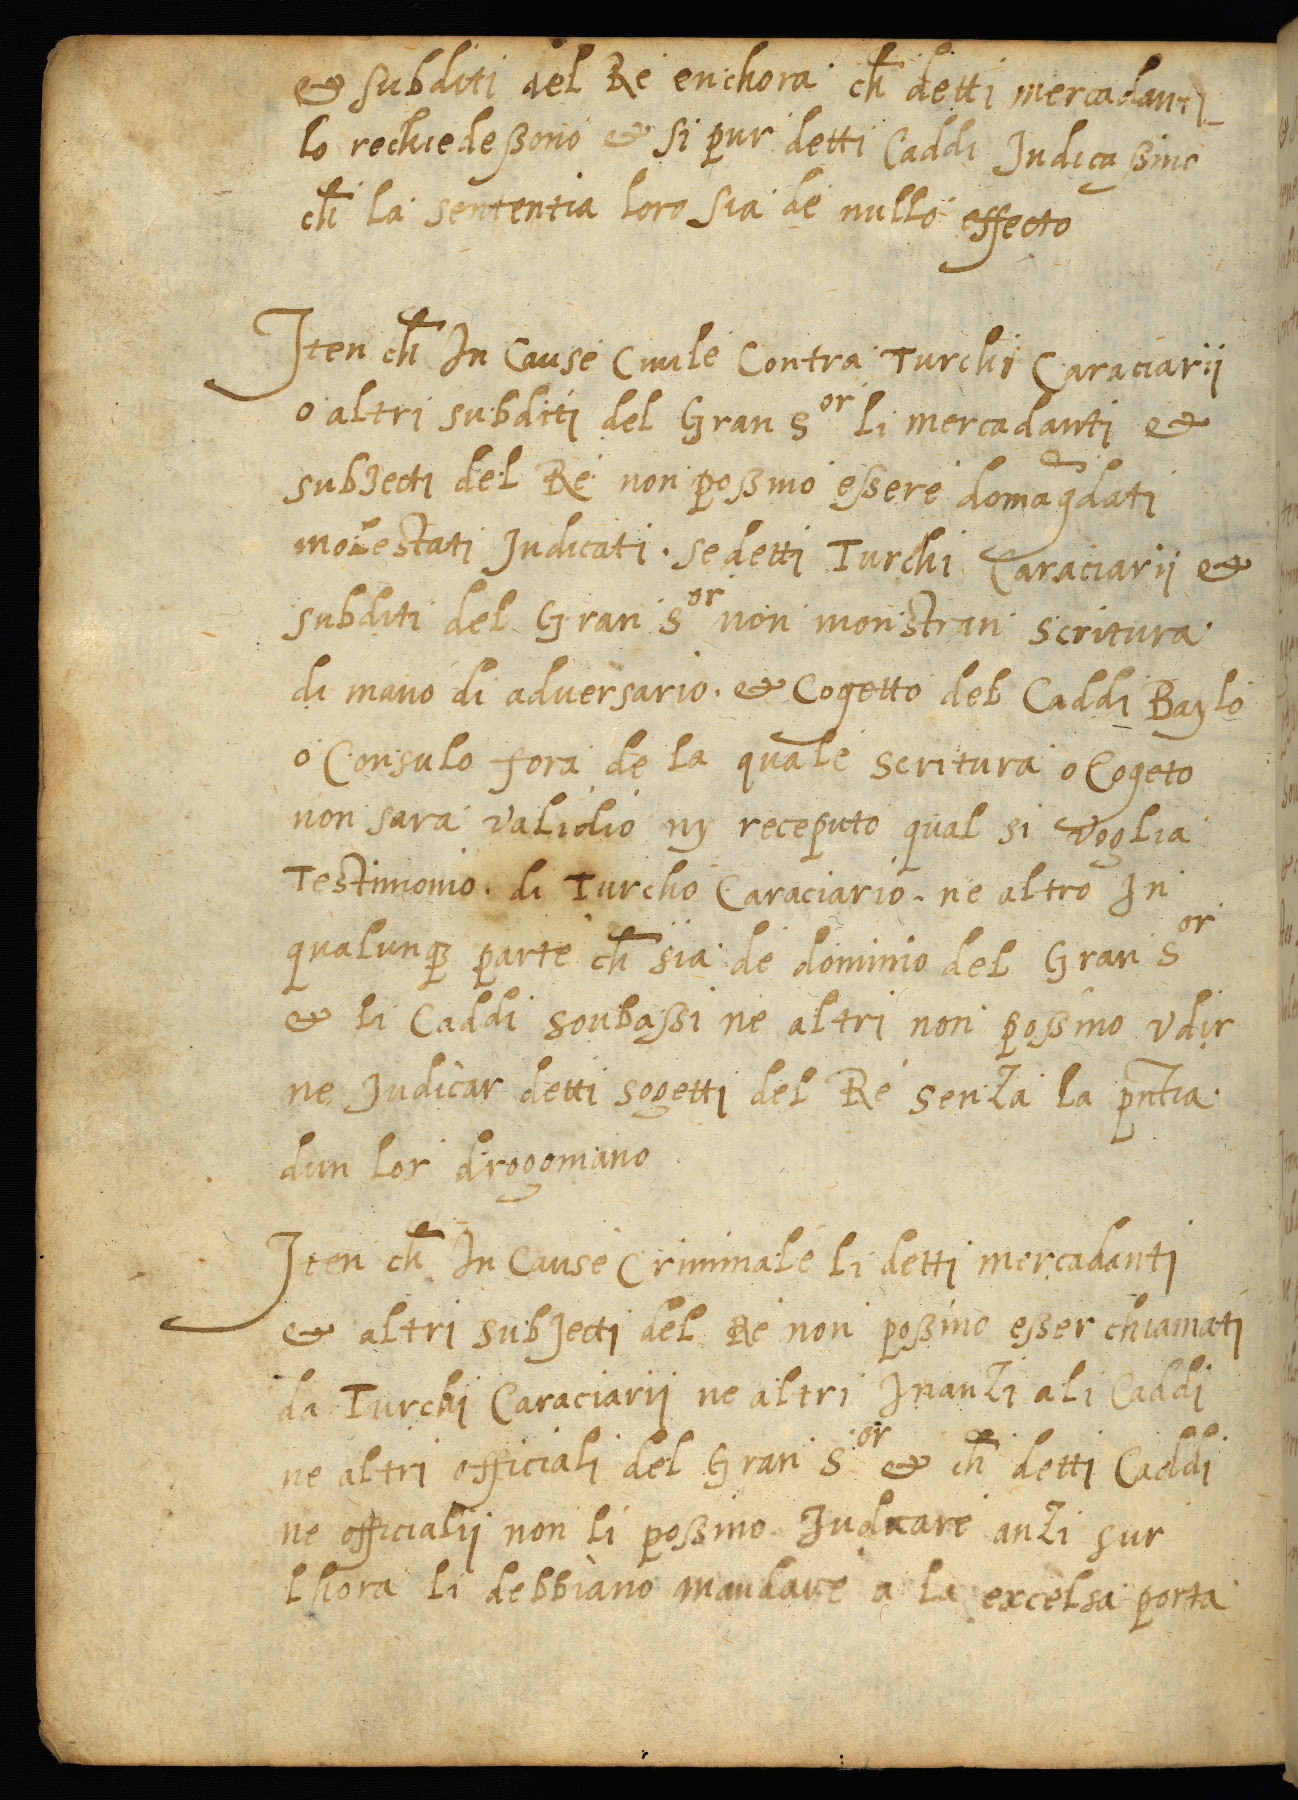 & subditi del Re enchora ch̃ detti mercadanti
lo rechiedeßono & si pur detti Caddi Judicaßino
ch̃ la sententia loro sia de nullo effecto
Iten ch̃ In Cause Ciuile Contra Turchi Caraciarij
o altri subditi del Gran Sor li mercadanti &
subJecti del Re non poßino eßere domandati
molestati Judicati. se detti Turchi Caraciarij &
subditi del Gran Sor non monstran scritura
di mano di aduersario. & Cogetto del Caddi Baylo
o Consulo fora de la quale scritura o Cogeto
non sara validio ny receputo qual si voglia
Testimonio. di Turcho Caraciario. ne altro In
qualunqȝ parte ch̃ sia de dominio del Gran Sor
& li Caddi soubaßi ne altri non poßino vdir
ne Judicar detti sogetti del Re senza la pñtia
dun lor drogomano
Iten ch̃ In Cause Criminale li detti mercadanti
& altri subJecti del Re non poßino eßer chiamati
da Turchi Caraciarij ne altri Inanzi a li Caddi
ne altri officiali del Gran Sor & ch̃ detti Caddi
ne officialij non li poßino Judicare anzi sur
lhora li debbiano mandare a la excelsa porta